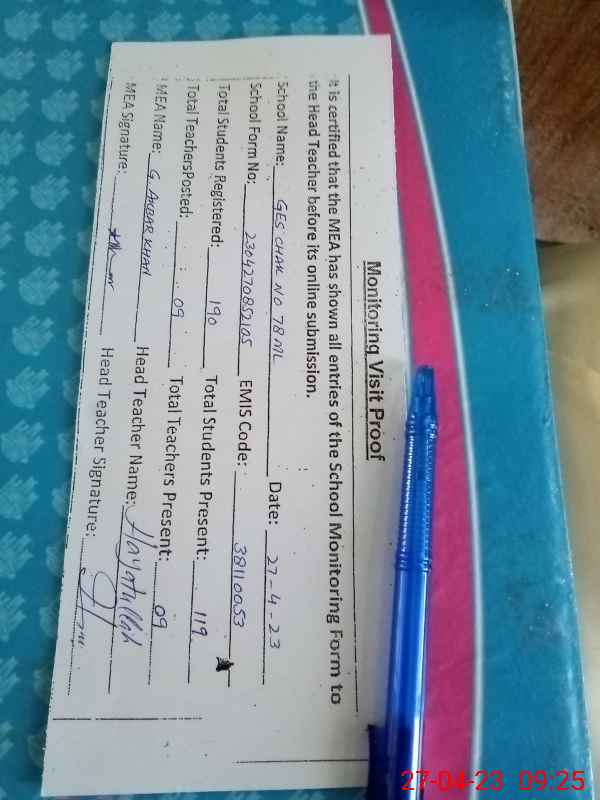 Monitoring Visit Proof
It is certified that the MEA has shown all entries of the School Monitoring Form to
the Head Teacher before its online submission.
School Name: GES CHAK NO 78 ML Date: 27-4-23
School Form No: 2304270852105 EMIS Code: 38110053
Total Students Registered: 190 Total Students Present: 119
Total TeachersPosted: 09 Total Teachers Present: 09
MEA Name: G. AKBAR KHAN Head Teacher Name: Hayatullah
MEA Signature: Head Teacher Signature:
27-04-23 09:25